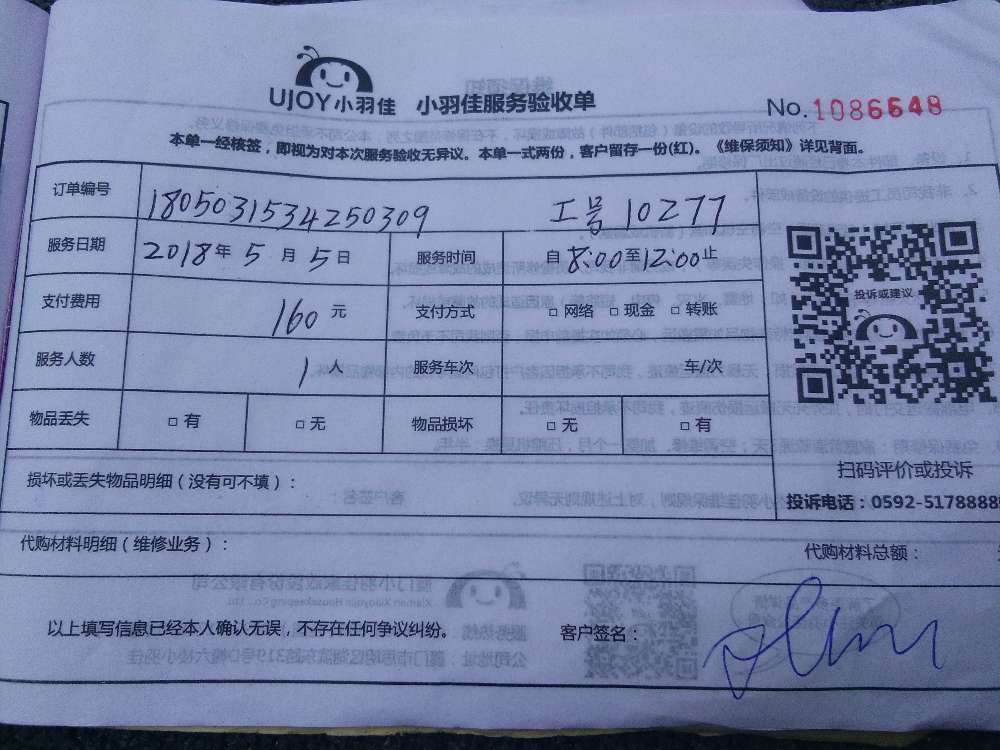 UJOY小羽佳 小羽佳服务验收单
No.1086648
本单一经核签，即视为对本次服务验收无异议。本单一式两份，客户留存一份(红)。《维保须知》详见背面。
订单编号 1805031534250309 工号 10277
服务日期 2018年 5 月 5 日 服务时间 自 8:00 至 12:00 止
投诉或建议
支付费用 160 元 支付方式 □ 网络 □ 现金 □ 转账
服务人数 1 人 服务车次 车/次
物品丢失 □ 有 □ 无 物品损坏 □ 无 □ 有
扫码评价或投诉
损坏或丢失物品明细（没有可不填）：
投诉电话：0592-5178888
代购材料明细（维修业务）：
代购材料总额：
以上填写信息已经本人确认无误，不存在任何争议纠纷。 客户签名：